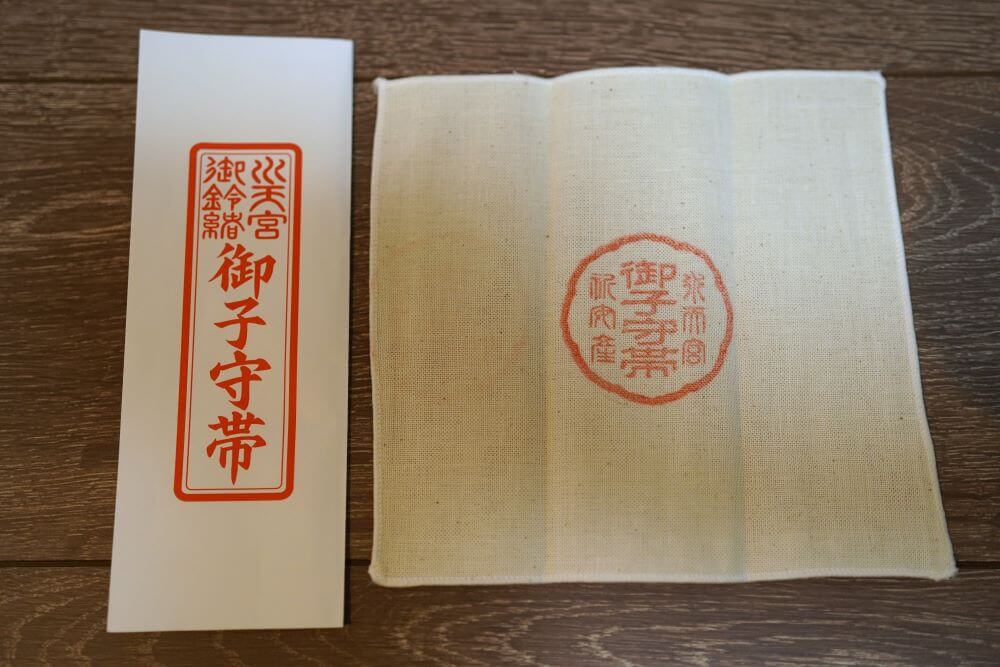 水天宮
御鈴緒
御子守帯
水天宮
御子守帯
祈安産